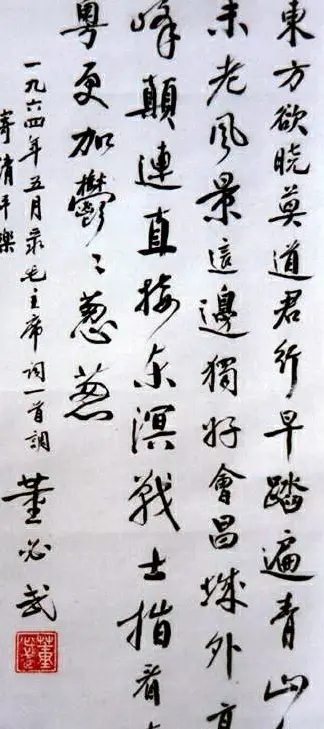 東方欲晓莫道君行早踏遍青山
未老風景這邊獨好會昌城外高
峰顛連直接东溟戰士指看
粤更加鬱〻葱葱
一九六四年五月录毛主席词一首調
寄清平樂
董必武
董必武